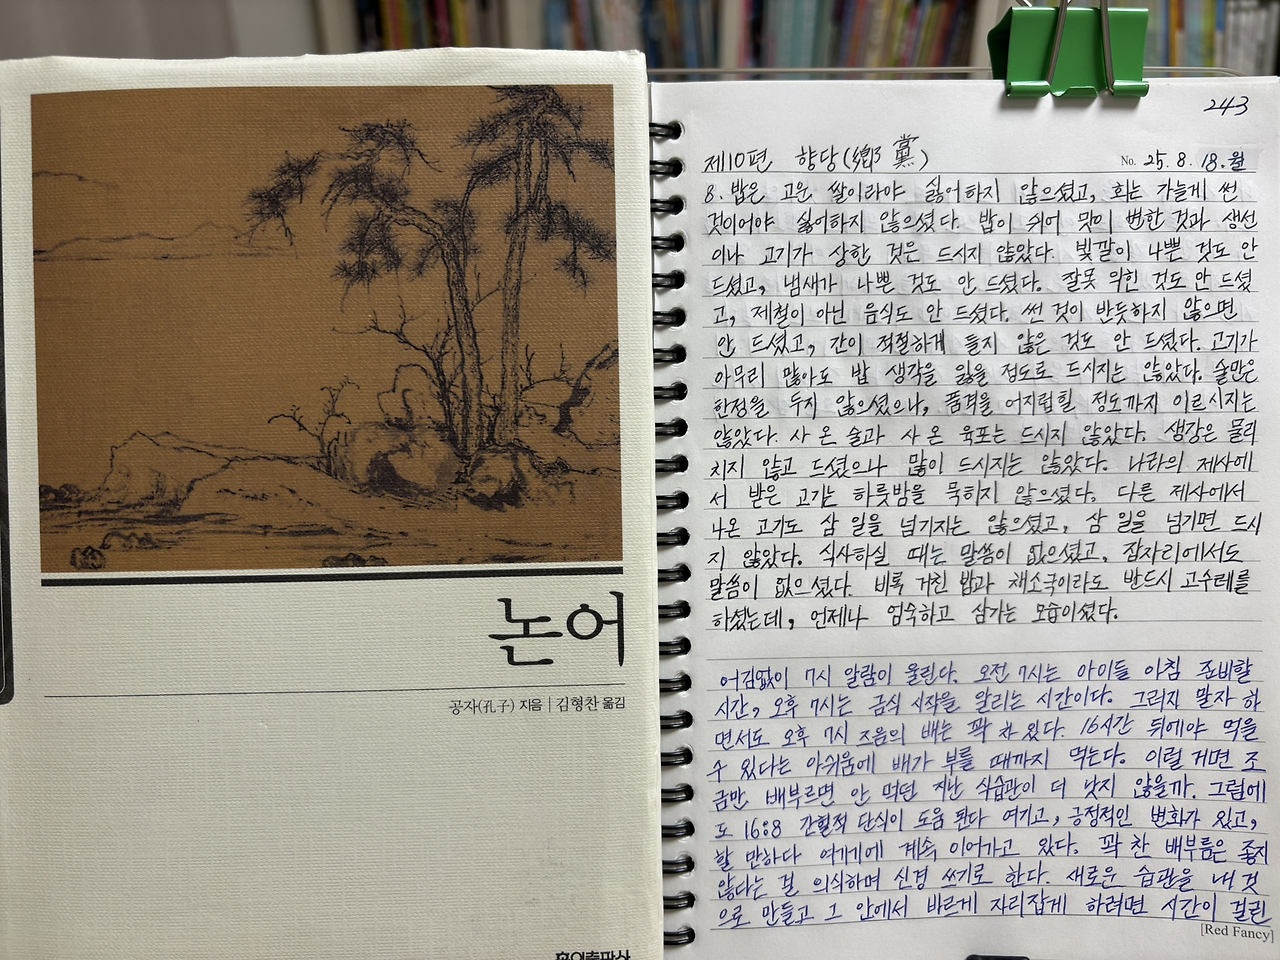 논어
공자(孔子) 지음 | 김형찬 옮김
243
제10편 향당(鄕黨)
No. 25. 8. 18. 월
8. 밥은 고운 쌀이라야 싫어하지 않으셨고, 회는 가늘게 썬
것이어야 싫어하지 않으셨다. 밥이 쉬어 맛이 변한 것과 생선
이나 고기가 상한 것은 드시지 않았다. 빛깔이 나쁜 것도 안
드셨고, 냄새가 나쁜 것도 안 드셨다. 잘못 익힌 것도 안 드셨
고, 제철이 아닌 음식도 안 드셨다. 썬 것이 반듯하지 않으면
안 드셨고, 간이 적절하게 들지 않은 것도 안 드셨다. 고기가
아무리 많아도 밥 생각을 잃을 정도로 드시지는 않았다. 술만은
한정을 두지 않으셨으나, 품격을 어지럽힐 정도까지 이르시지는
않았다. 사 온 술과 사 온 육포는 드시지 않았다. 생강은 물리
치지 않고 드셨으나 많이 드시지는 않았다. 나라의 제사에
서 받은 고기는 하룻밤을 묵히지 않으셨다. 다른 제사에서
나온 고기도 삼 일을 넘기지는 않으셨고, 삼 일을 넘기면 드시
지 않았다. 식사하실 때는 말씀이 없으셨고, 잠자리에서도
말씀이 없으셨다. 비록 거친 밥과 채소국이라도 반드시 고수레를
하셨는데, 언제나 엄숙하고 삼가는 모습이셨다.
어김없이 7시 알람이 울린다. 오전 7시는 아이들 아침 준비할
시간, 오후 7시는 금식 시작을 알리는 시간이다. 그러지 말자 하
면서도 오후 7시 즈음의 배는 꽉 차 있다. 16시간 뒤에야 먹을
수 있다는 아쉬움에 배가 부를 때까지 먹는다. 이럴 거면 조
금만 배부르면 안 먹던 지난 식습관이 더 낫지 않을까. 그럼에
도 16:8 간헐적 단식이 도움 된다 여기고, 긍정적인 변화가 있고,
할 만하다 여기기에 계속 이어가고 있다. 꽉 찬 배부름은 좋지
않다는 걸 의식하며 신경 쓰기로 한다. 새로운 습관을 내 것
으로 만들고 그 안에서 바르게 자리잡게 하려면 시간이 걸린
[Red Fancy]